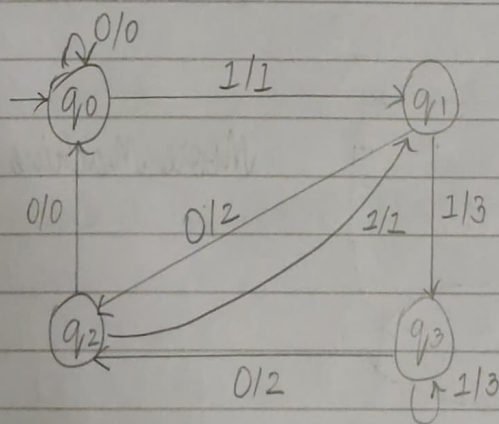 0/0
q0 1/1 q1
0/0 0/2 1/1 1/3
q2 q3
0/2 1/3